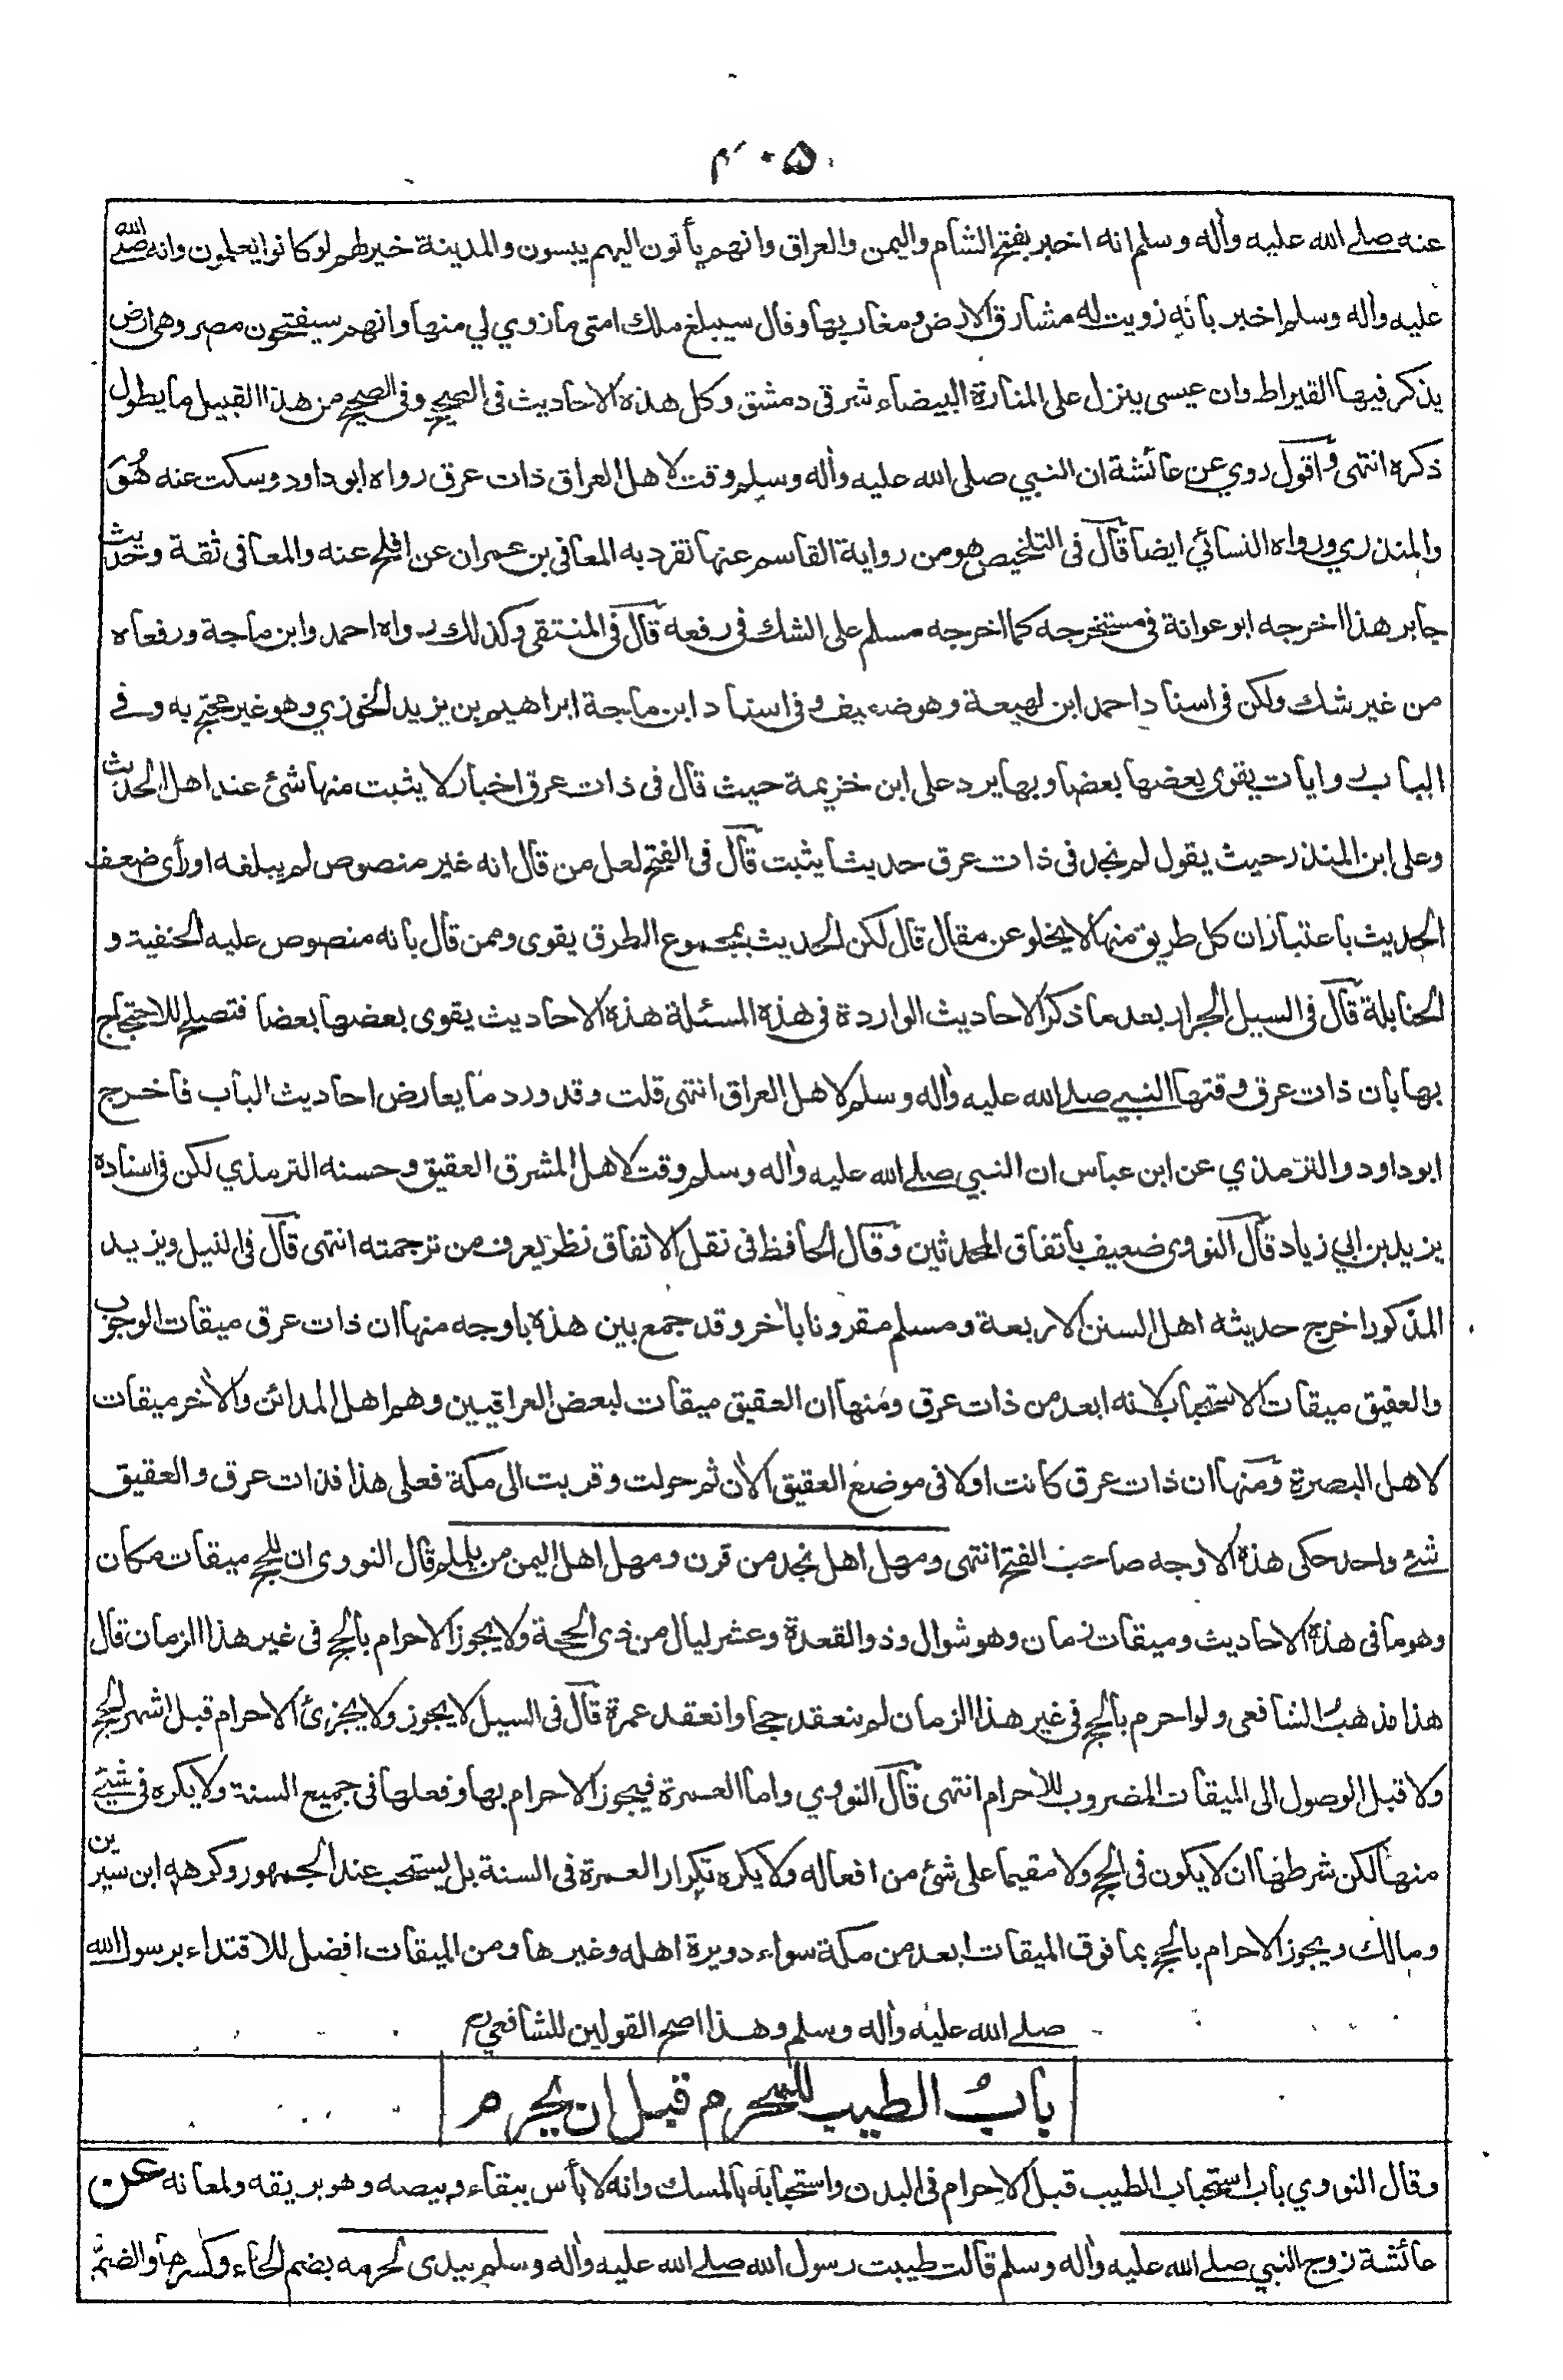 ٤٠٥
عنه صلے الله عليه واٰله وسلم انه اخبر بفتح الشام واليمن والعراق وانهم يأتون اليهم يبسون والمدينة خير لهم لو كانوا يعلمون وانه صلے الله
عليه واٰله وسلم اخبر بانه زويت له مشارق الارض ومغاربها وقال سيبلغ ملك امتى ما زوي لي منها وانهم سيفتحون مصر وهى ارض
يذكر فيها القيراط وان عيسى ينزل على المنارة البيضاء شرقى دمشق وكل هذه الاحاديث فى الصحيح وفى الصحيح من هذا القبيل ما يطول
ذكره انتهى واقول روي عن عائشة ان النبي صلى الله عليه واٰله وسلم وقت لاهل العراق ذات عرق رواه ابو داود وسكت عنه هُوَ
والمنذري ورواه النسائي ايضا قال فى التلخيص هو من رواية القاسم عنها تفرد به المعافى بن عمران عن افلح عنه والمعافى ثقة وحديث
جابر هذا اخرجه ابو عوانة فى مستخرجه كما اخرجه مسلم على الشك فى رفعه قال فى المنتقى وكذلك رواه احمد وابن ماجة ورفعاه
من غير شك ولكن فى اسناد احمد ابن لهيعة وهو ضعيف وفى اسناد ابن ماجة ابراهيم بن يزيد الخوزي وهو غير محتج به وفے
الباب روايات يقوى بعضها بعضا وبها يرد على ابن خزيمة حيث قال فى ذات عرق اخبار لا يثبت منها شئ عند اهل الحديث
وعلى ابن المنذر حيث يقول لم نجد فى ذات عرق حديثا يثبت قال فى الفتح لعل من قال انه غير منصوص لم يبلغه او رأى ضعف
الحديث باعتبار ان كل طريق منها لا يخلو عن مقال قال لكن الحديث بمجموع الطرق يقوى وممن قال بانه منصوص عليه الحنفية و
الحنابلة قال فى السيل الجرار بعد ما ذكر الاحاديث الواردة فى هذه المسئلة هذه الاحاديث يقوى بعضها بعضا فتصلح للاحتجاج
بها بان ذات عرق وقتها النبي صلے الله عليه واٰله وسلم لاهل العراق انتهى قلت وقد ورد ما يعارض احاديث الباب فاخرج
ابو داود والترمذي عن ابن عباس ان النبي صلے الله عليه واٰله وسلم وقت لاهل المشرق العقيق وحسنه الترمذي لكن فى اسناده
يزيد بن ابي زياد قال النووى ضعيف باتفاق المحدثين وقال الحافظ فى نقل الاتفاق نظر يعرف من ترجمته انتهى قال فى النيل ويزيد
المذكور اخرج حديثه اهل السنن الاربعة ومسلم مقرونا باٰخر وقد جمع بين هذه باوجه منها ان ذات عرق ميقات الوجوب
والعقيق ميقات الاستحباب لانه ابعد من ذات عرق ومنها ان العقيق ميقات لبعض العراقيين وهم اهل المدائن والاٰخر ميقات
لاهل البصرة ومنها ان ذات عرق كانت اولا فى موضع العقيق الاٰن ثم حولت وقربت الى مكة فعلى هذا فذات عرق والعقيق
شئ واحد حكى هذه الاوجه صاحب الفتح انتهى ومهل اهل نجد من قرن ومهل اهل اليمن من يلملم قال النووى ان للحج ميقات مكان
وهو ما فى هذه الاحاديث وميقات زمان وهو شوال وذو القعدة وعشر ليال من ذى الحجة ولا يجوز الاحرام بالحج فى غير هذا الزمان قال
هذا مذهب الشافعى ولو احرم بالحج فى غير هذا الزمان لم ينعقد حجا وانعقد عمرة قال فى السيل لا يجوز ولا يجزئ الاحرام قبل اشهر الحج
ولا قبل الوصول الى الميقات المضروب للاحرام انتهى قال النووي واما العمرة فيجوز الاحرام بها وفعلها فى جميع السنة ولا يكره فى شئ
منها لكن شرطها ان لا يكون فى الحج ولا مقيما على شئ من افعاله ولا يكره تكرار العمرة فى السنة بل يستحب عند الجمهور وكرهه ابن سيرين
ومالك ويجوز الاحرام بالحج بما فوق الميقات ابعد من مكة سواء دويرة اهله وغيرها ومن الميقات افضل للاقتداء برسول الله
صلے الله عليه واٰله وسلم وهذا اصح القولين للشافعي رح
بابُ الطيب للمحرم قبل ان يحرم
وقال النووي باب استحباب الطيب قبل الاحرام فى البدن واستحبابه بالمسك وانه لا بأس ببقاء وبيصه وهو بريقه ولمعانه عن
عائشة زوج النبي صلے الله عليه واٰله وسلم قالت طيبت رسول الله صلے الله عليه واٰله وسلم بيدى لحرمه بضم الحاء وكسرها والضم